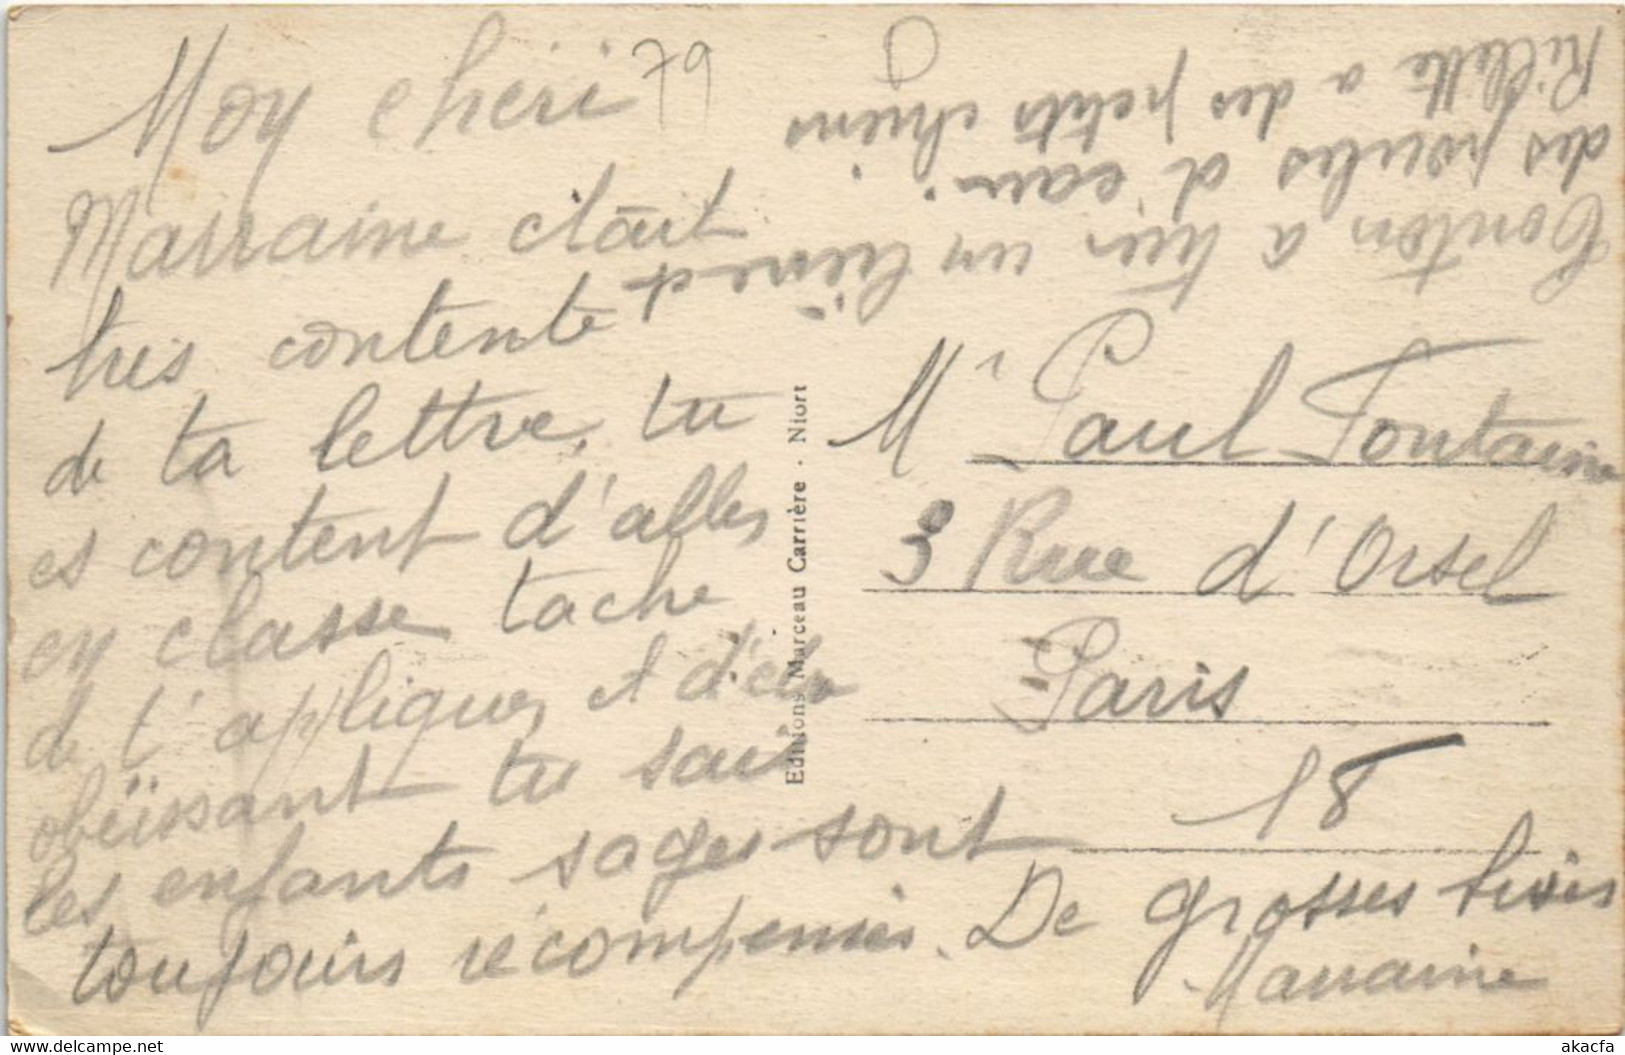 Moy cheri
79
Marraine était
tres contente
de ta lettre, tu
es content d'aller
en classe tache
de t'appliquer et d'etre
obëissant tu sais
les enfants sages sont
toujours récompensés. De grosses bises
Marraine
Tonton a tué un lièvre et
des poules d'eau.
Rillette a des petits chiens
Editions Marceau Carrière · Niort
Mr Paul Fontaine
3 Rue d'Orsel
Paris
18
akacfa